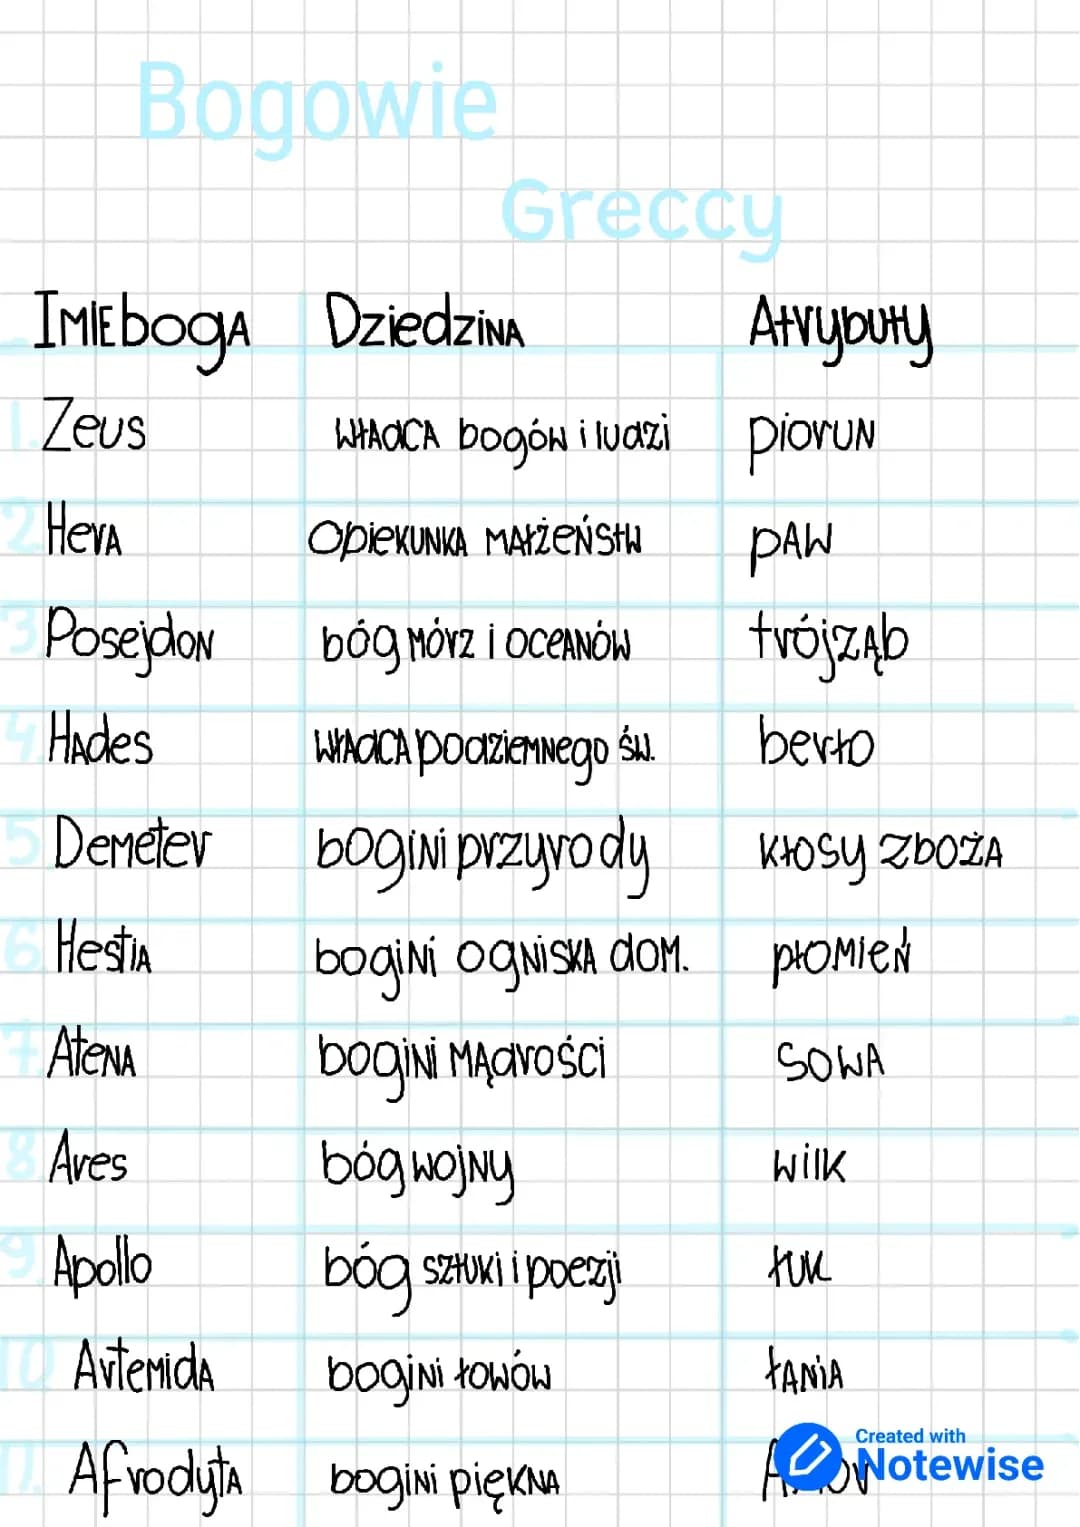 Bogowie
Greccy
Imie boga Dziedzina Atrybuty
1. Zeus władca bogów i ludzi piorun
2. Hera opiekunka małżeństw paw
3. Posejdon bóg mórz i oceanów trójząb
4. Hades władca podziemnego św. berło
5. Demeter bogini przyrody kłosy zboża
6. Hestia bogini ogniska dom. płomień
7. Atena bogini mądrości sowa
8. Ares bóg wojny wilk
9. Apollo bóg sztuki i poezji łuk
10. Artemida bogini łowów łania
11. Afrodyta bogini piękna
Created with
Notewise